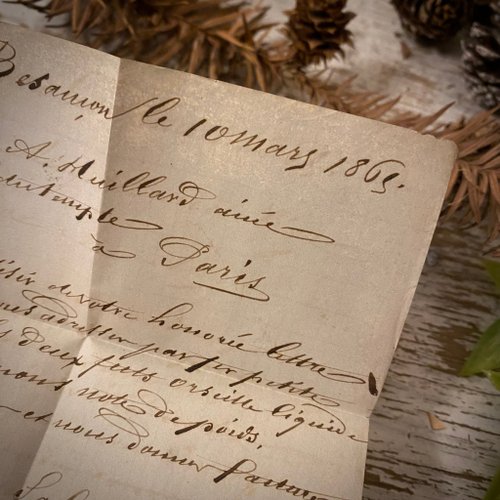 Besançon le 10 mars 1865.
A. Huillard ainé
à Paris
de votre honorée lettre
adresser par
deux futs orseille liquide
nous note de poids,
et nous donner facture